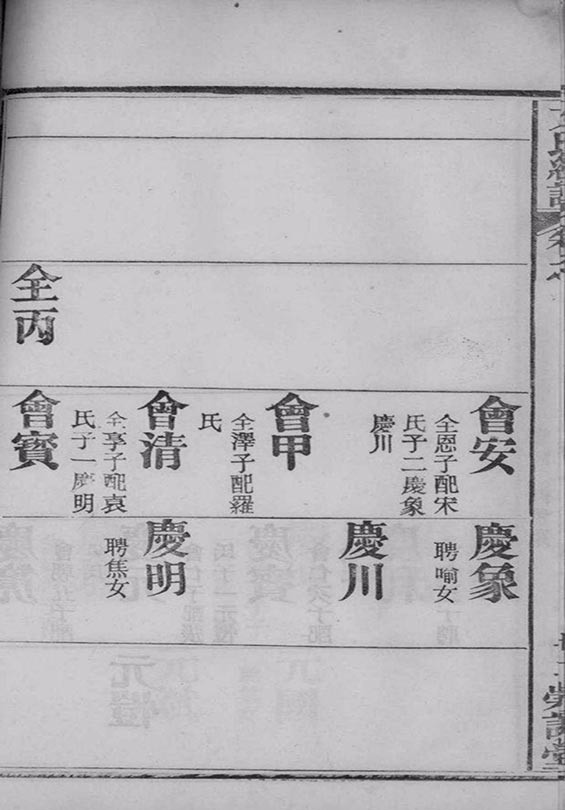 全丙
會安
全恩子配宋
氏子二慶象
慶川
會甲
全澤子配羅
氏
會清
全享子配袁
氏子一慶明
會賓
慶象
聘喻女
慶川
慶明
聘焦女